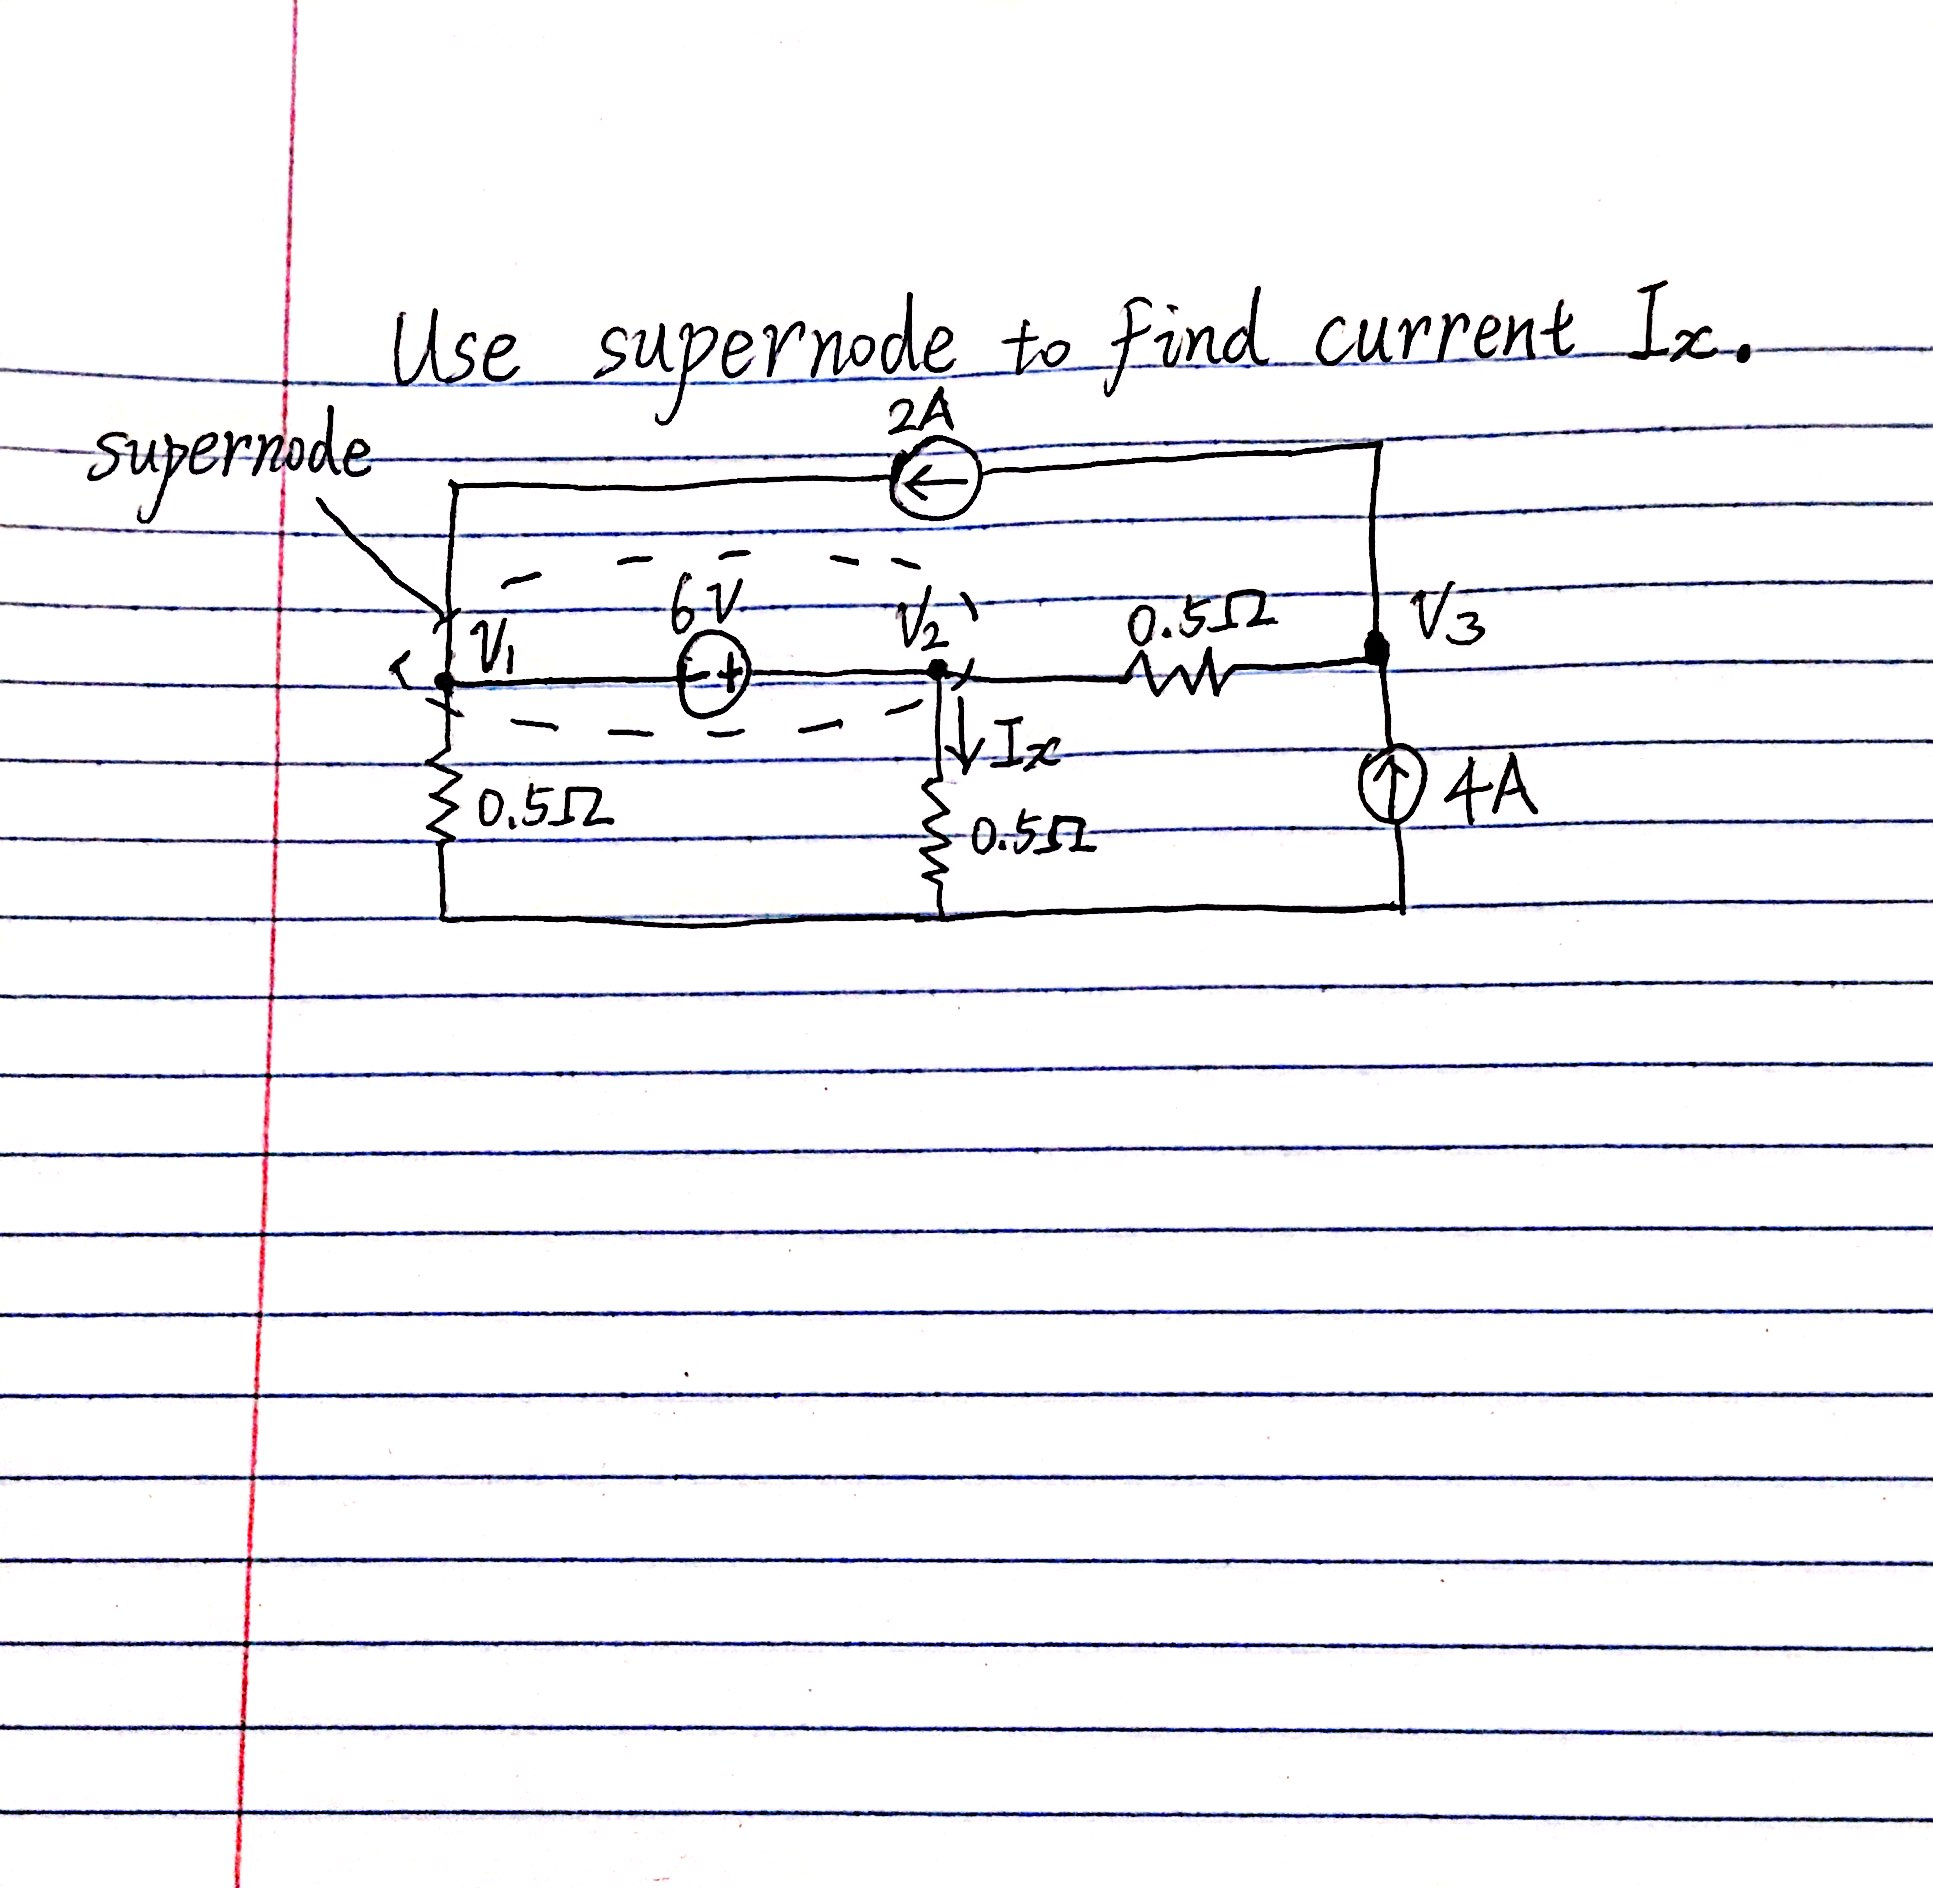 Use supernode to find current Ix.
2A
supernode
6V
V1
V2
0.5Ω
V3
- +
Ix
0.5Ω
0.5Ω
4A